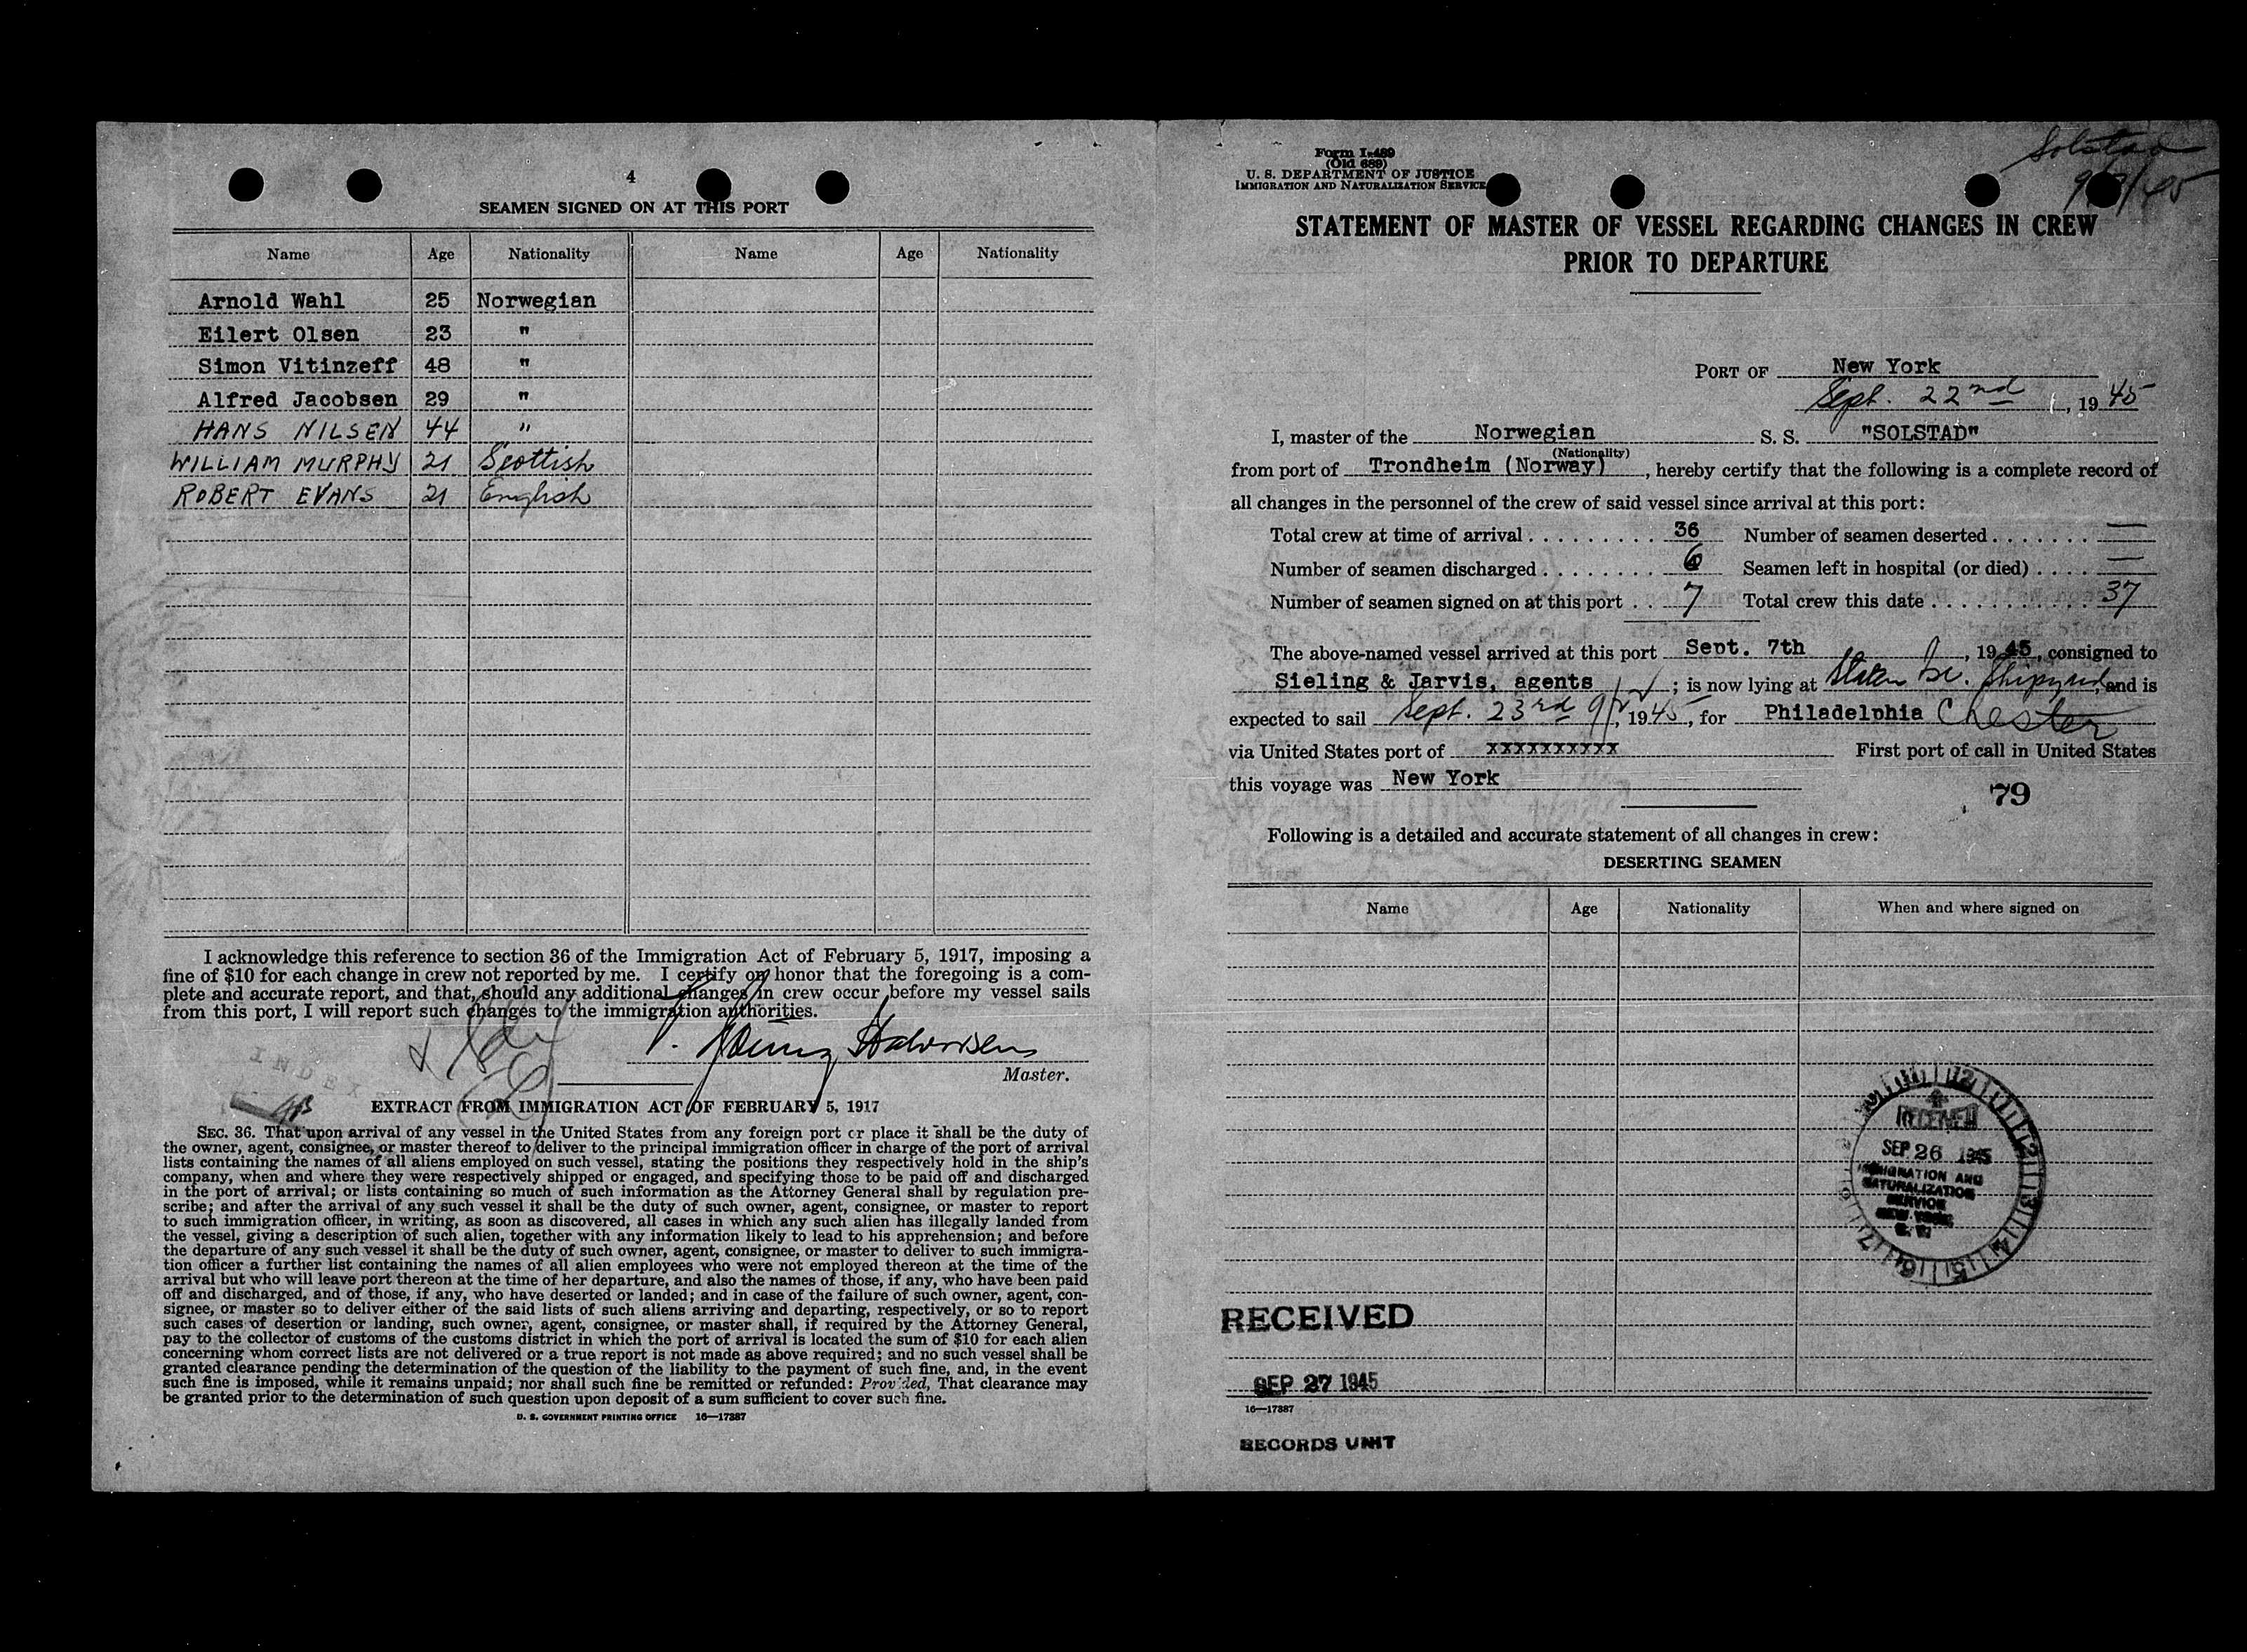 4
SEAMEN SIGNED ON AT THIS PORT
Name Age Nationality Name Age Nationality
Arnold Wahl 25 Norwegian
Eilert Olsen 23 "
Simon Vitinzeff 48 "
Alfred Jacobsen 29 "
HANS NILSEN 44 "
WILLIAM MURPHY 21 Scottish
ROBERT EVANS 21 English
I acknowledge this reference to section 36 of the Immigration Act of February 5, 1917, imposing a
fine of $10 for each change in crew not reported by me. I certify on honor that the foregoing is a com-
plete and accurate report, and that, should any additional changes in crew occur before my vessel sails
from this port, I will report such changes to the immigration authorities.
Halvorsen
Master.
INDEX
EXTRACT FROM IMMIGRATION ACT OF FEBRUARY 5, 1917
SEC. 36. That upon arrival of any vessel in the United States from any foreign port or place it shall be the duty of
the owner, agent, consignee, or master thereof to deliver to the principal immigration officer in charge of the port of arrival
lists containing the names of all aliens employed on such vessel, stating the positions they respectively hold in the ship's
company, when and where they were respectively shipped or engaged, and specifying those to be paid off and discharged
in the port of arrival; or lists containing so much of such information as the Attorney General shall by regulation pre-
scribe; and after the arrival of any such vessel it shall be the duty of such owner, agent, consignee, or master to report
to such immigration officer, in writing, as soon as discovered, all cases in which any such alien has illegally landed from
the vessel, giving a description of such alien, together with any information likely to lead to his apprehension; and before
the departure of any such vessel it shall be the duty of such owner, agent, consignee, or master to deliver to such immigra-
tion officer a further list containing the names of all alien employees who were not employed thereon at the time of the
arrival but who will leave port thereon at the time of her departure, and also the names of those, if any, who have been paid
off and discharged, and of those, if any, who have deserted or landed; and in case of the failure of such owner, agent, con-
signee, or master so to deliver either of the said lists of such aliens arriving and departing, respectively, or so to report
such cases of desertion or landing, such owner, agent, consignee, or master shall, if required by the Attorney General,
pay to the collector of customs of the customs district in which the port of arrival is located the sum of $10 for each alien
concerning whom correct lists are not delivered or a true report is not made as above required; and no such vessel shall be
granted clearance pending the determination of the question of the liability to the payment of such fine, and, in the event
such fine is imposed, while it remains unpaid; nor shall such fine be remitted or refunded: Provided, That clearance may
be granted prior to the determination of such question upon deposit of a sum sufficient to cover such fine.
U. S. GOVERNMENT PRINTING OFFICE 16—17387
Solstad
Form I-489
(Old 689)
U. S. DEPARTMENT OF JUSTICE
IMMIGRATION AND NATURALIZATION SERVICE
STATEMENT OF MASTER OF VESSEL REGARDING CHANGES IN CREW
PRIOR TO DEPARTURE
PORT OF New York
Sept. 22nd, 1945
I, master of the Norwegian S. S. "SOLSTAD"
(Nationality)
from port of Trondheim (Norway), hereby certify that the following is a complete record of
all changes in the personnel of the crew of said vessel since arrival at this port:
Total crew at time of arrival . . . . . . . . . 36 Number of seamen deserted . . . . . . . —
Number of seamen discharged . . . . . . . . 6 Seamen left in hospital (or died) . . . . —
Number of seamen signed on at this port . . 7 Total crew this date . . . . . . . . . . . 37
The above-named vessel arrived at this port Sept. 7th, 1945, consigned to
Sieling & Jarvis, agents; is now lying at Staten Is. Shipyard, and is
expected to sail Sept. 23rd, 1945, for Philadelphia Chester
via United States port of xxxxxxxxxx First port of call in United States
this voyage was New York
79
Following is a detailed and accurate statement of all changes in crew:
DESERTING SEAMEN
Name Age Nationality When and where signed on
RECEIVED
SEP 26 1945
IMMIGRATION AND
NATURALIZATION
SERVICE
NEW YORK
N. Y.
RECEIVED
SEP 27 1945
16—17387
RECORDS UNIT